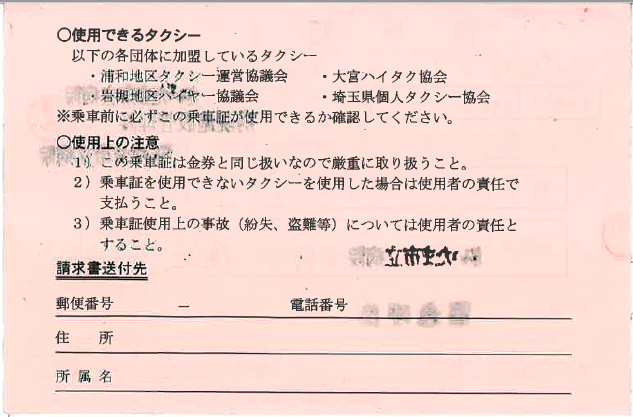 ○使用できるタクシー
以下の各団体に加盟しているタクシー
・浦和地区タクシー運営協議会　・大宮ハイタク協会
・岩槻地区ハイヤー協議会　・埼玉県個人タクシー協会
※乗車前に必ずこの乗車証が使用できるか確認してください。
○使用上の注意
1）この乗車証は金券と同じ扱いなので厳重に取り扱うこと。
2）乗車証を使用できないタクシーを使用した場合は使用者の責任で
支払うこと。
3）乗車証使用上の事故（紛失、盗難等）については使用者の責任と
すること。
請求書送付先
郵便番号　　　－　　　電話番号
住　所
所属名